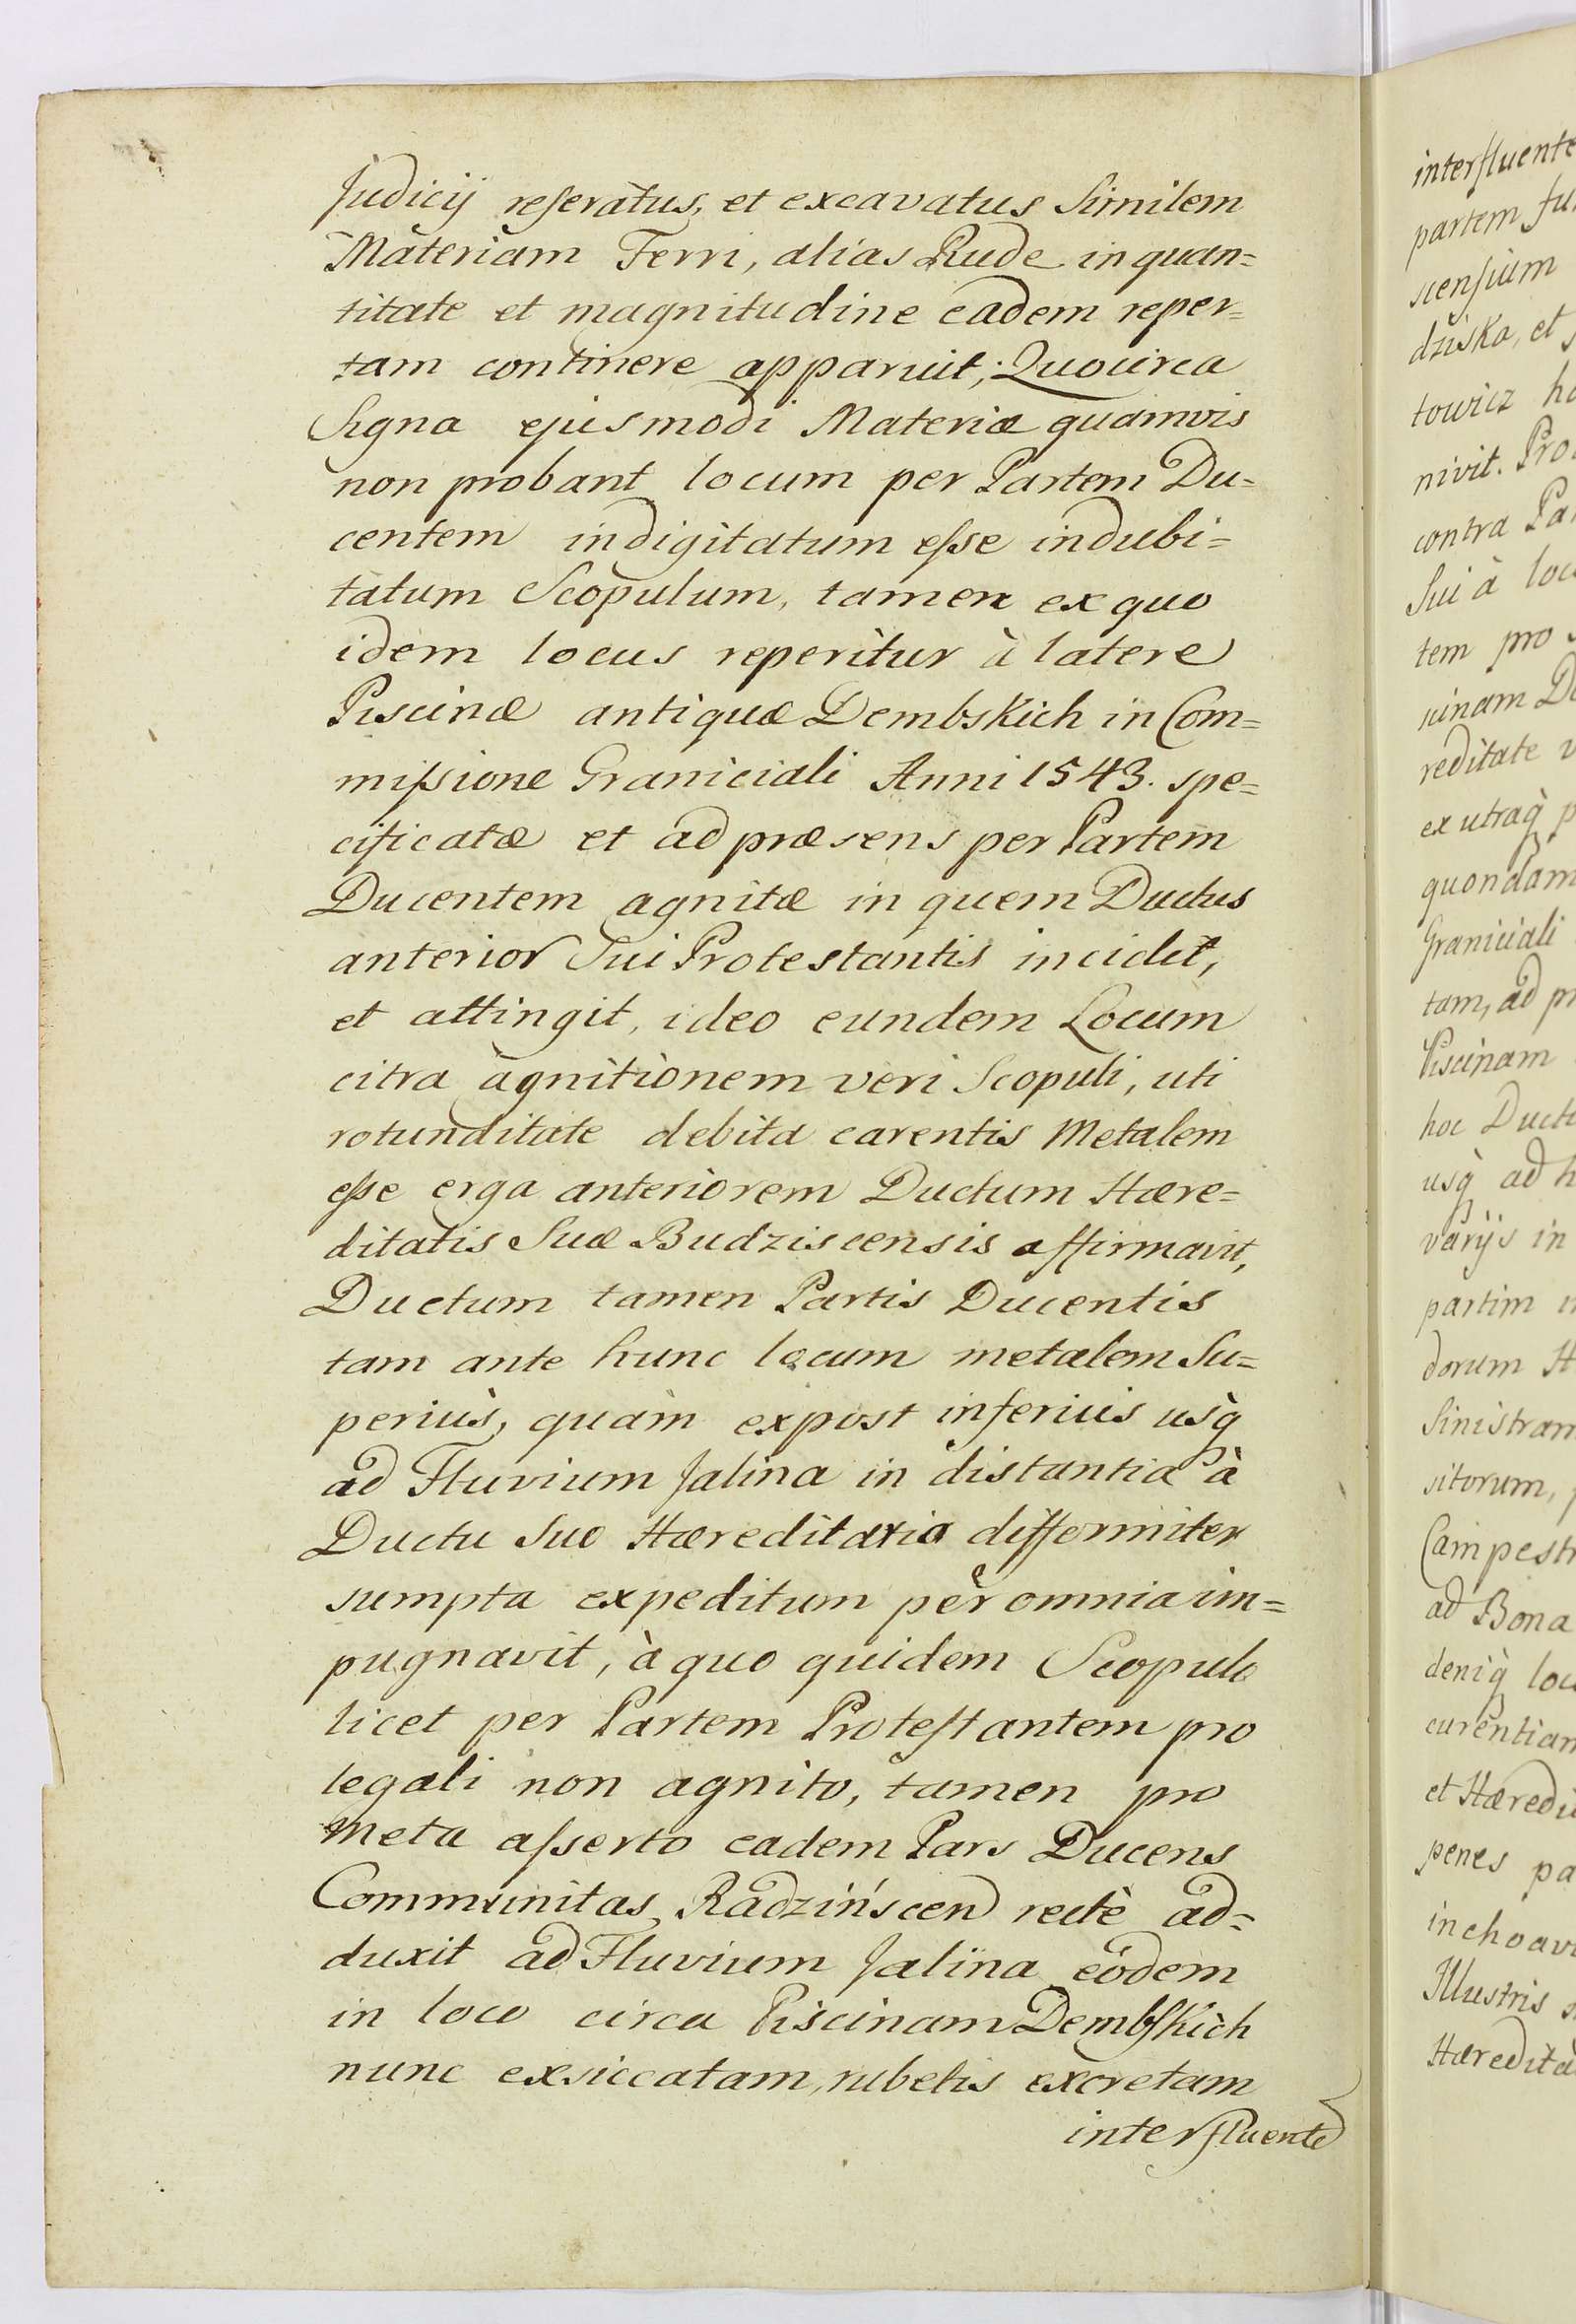 Judicij reseratus, et excavatus Similem
Materiam Ferri, alias Rude in quan=
titate et magnitudine eadem reper=
tam continere apparuit; Quocirca
Signa ejusmodi Materiæ quamvis
non probant locum per Partem Du=
centem indigitatum esse indubi=
tatum Scopulum, tamen ex quo
idem locus reperitur à latere
Piscinæ antiquæ Dembskich in Com=
missione Graniciali Anni 1543. spe=
cificatæ et ad præsens per Partem
Ducentem agnitæ in quem Ductus
anterior Sui Protestantis incidit,
et attingit, ideo eundem Locum
citra agnitionem veri Scopuli, uti
rotunditate debita carentis Metalem
esse erga anteriorem Ductum Hære=
ditatis Suæ Budziscensis affirmavit,
Ductum tamen Partis Ducentis
tam ante hunc locum metalem Su=
periùs, quàm expost inferius usq̀
ad Fluvium Jalina in distantia à
Ductu Suo Hæreditario difformiter
sumpta expeditum per omnia im=
pugnavit, à quo quidem Scopulo
licet per Partem Protestantem pro
legali non agnito, tamen pro
Meta asserto eadem Pars Ducens
Communitas Radzińscen rectè ad=
duxit ad Fluvium Jalina eodem
in loco circa Piscinam Dembskich
nunc exsiccatam, rubetis excretam
interfluente
interfluente
partem
scensium
dziska, et
towicz
nivit.
contra
Sui à
tem pro
cinam
reditate
ex utraq̀
quondam
Graniciali
tam, ad
Piscinam
hoc
usq̀ ad
varijs in
partim
dorum
Sinistram
sitorum,
Campestr
ad Bona
deniq̀
curentiam
et
penes
inchoav
Illustris
Hæredita